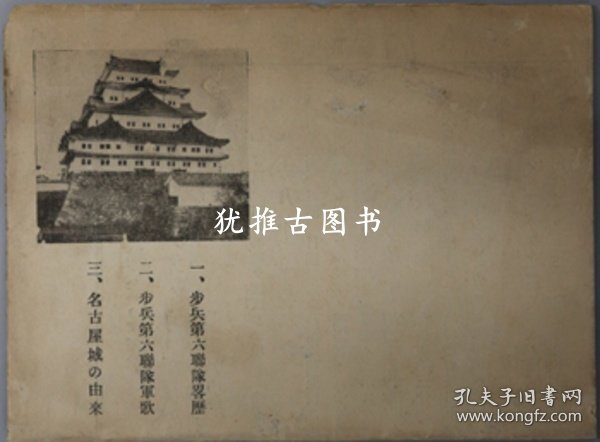 一、歩兵第六聯隊畧歴
二、歩兵第六聯隊軍歌
三、名古屋城の由来
犹推古图书
孔夫子旧书网
www.kongfz.com